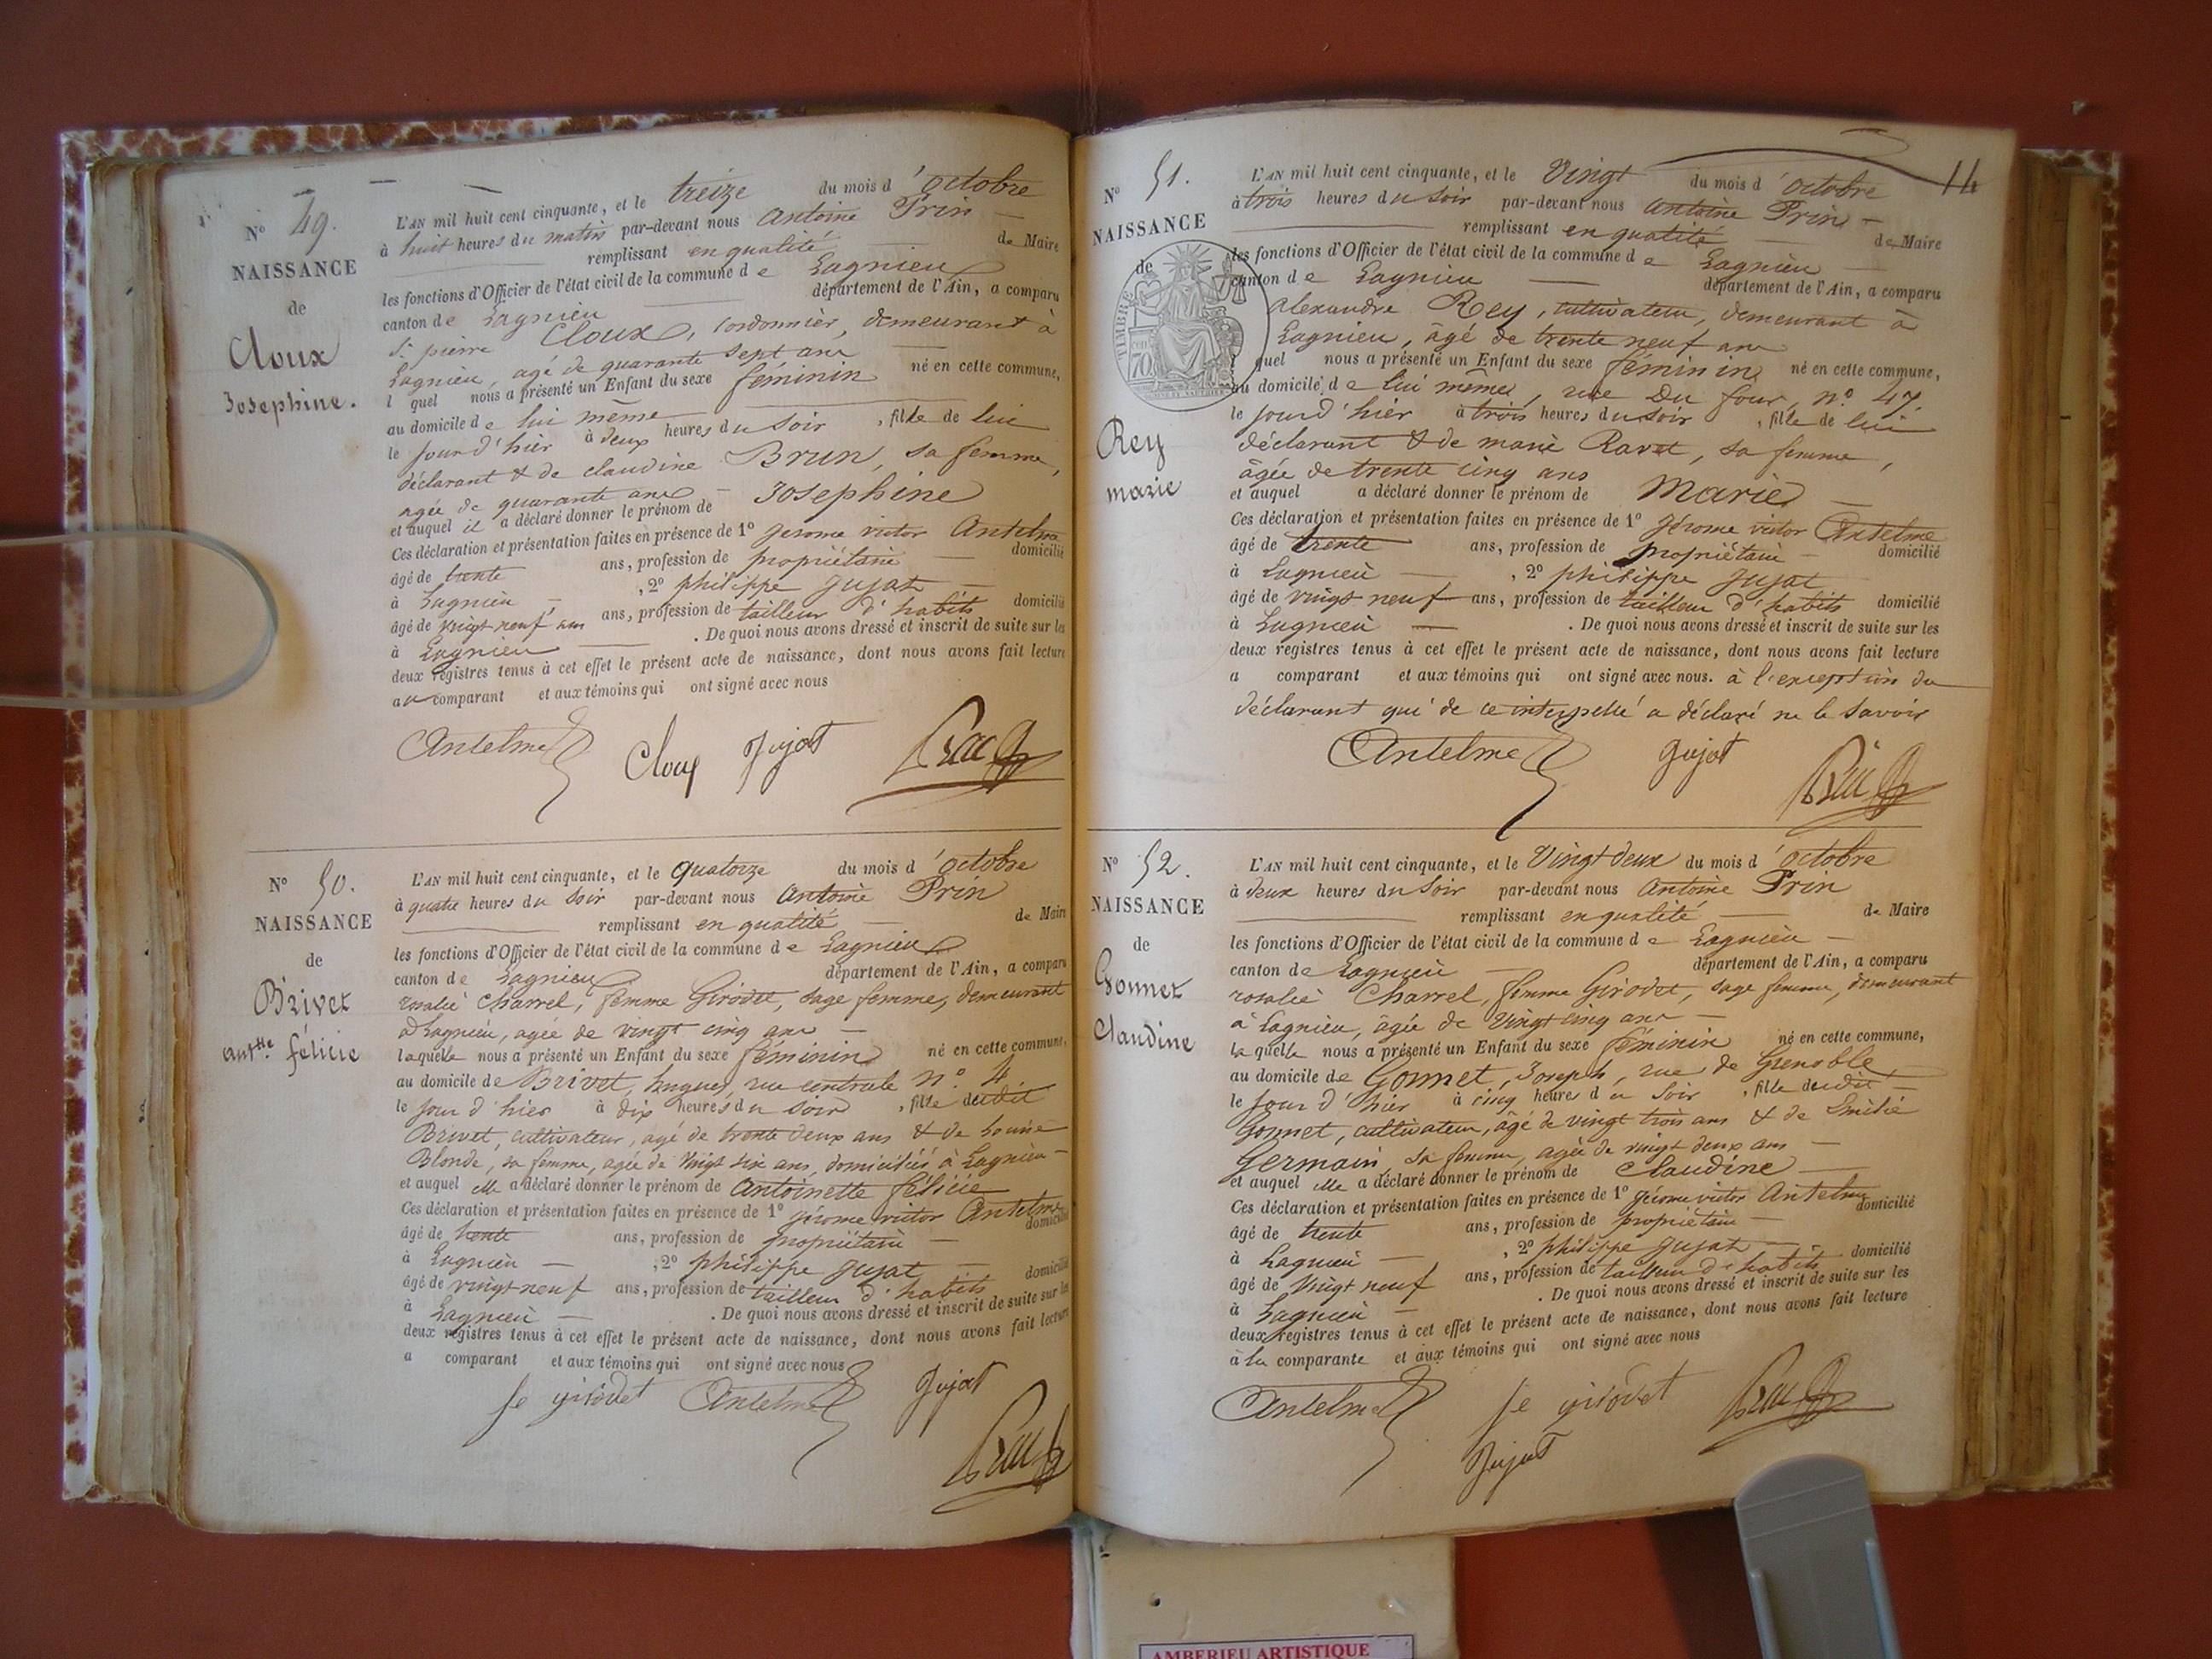 N° 49.
NAISSANCE
de
Cloux
Josephine.
L'AN mil huit cent cinquante, et le treize du mois d'octobre
à huit heures du matin par-devant nous Antoine Prin
remplissant en qualité de Maire
les fonctions d'Officier de l'état civil de la commune de Lagnieu
canton de Lagnieu département de l'Ain, a comparu
St pierre Cloux, cordonnier, demeurant à
Lagnieu, agé de quarante sept ans
lequel nous a présenté un Enfant du sexe féminin né en cette commune,
au domicile de lui même
le jour d'hier à deux heures du soir, fille de lui
déclarant & de claudine Brun, sa femme,
agée de quarante ans
et auquel il a déclaré donner le prénom de Josephine
Ces déclaration et présentation faites en présence de 1° gerome victor Antelme
âgé de trente ans, profession de propriétaire domicilié
à Lagnieu, 2° philippe Jujat
âgé de vingt neuf ans ans, profession de tailleur d'habits domicilié
à Lagnieu. De quoi nous avons dressé et inscrit de suite sur les
deux registres tenus à cet effet le présent acte de naissance, dont nous avons fait lecture
au comparant et aux témoins qui ont signé avec nous
Antelme Cloux Jujat
N° 50.
NAISSANCE
de
Brivet
anttte félicie
L'AN mil huit cent cinquante, et le quatorze du mois d'octobre
à quatre heures du soir par-devant nous Antoine Prin
remplissant en qualité de Maire
les fonctions d'Officier de l'état civil de la commune de Lagnieu
canton de Lagnieu département de l'Ain, a comparu
rosalie Charrel, femme Girodet, sage femme, demeurant
à Lagnieu, agée de vingt cinq ans
laquelle nous a présenté un Enfant du sexe féminin né en cette commune,
au domicile de Brivet, hugues, rue centrale n°. 4
le jour d'hier à dix heures du soir, fille dudit
Brivet, cultivateur, agé de trente deux ans & de
Blonde, sa femme, agée de vingt six ans, domiciliés à Lagnieu
et auquel elle a déclaré donner le prénom de Antoinette félicie
Ces déclaration et présentation faites en présence de 1° gérome victor Antelme
âgé de trente ans, profession de propriétaire domicilié
à Lagnieu, 2° philippe Jujat
âgé de vingt neuf ans, profession de tailleur d'habits domicilié
à Lagnieu. De quoi nous avons dressé et inscrit de suite sur les
deux registres tenus à cet effet le présent acte de naissance, dont nous avons fait lecture
a comparant et aux témoins qui ont signé avec nous
fe girodet Antelme Jujat
14
N° 51.
NAISSANCE
de
TIMBRE
70
Rey
marie
L'AN mil huit cent cinquante, et le Vingt du mois d'octobre
à trois heures du soir par-devant nous Antoine Prin
remplissant en qualité de Maire
les fonctions d'Officier de l'état civil de la commune de Lagnieu
canton de Lagnieu département de l'Ain, a comparu
Alexandre Rey, cultivateur, demeurant à
Lagnieu, âgé de trente neuf ans
lequel nous a présenté un Enfant du sexe féminin né en cette commune,
au domicile de lui même, rue Du four, n°. 47.
le jour d'hier à trois heures du soir, fille de lui
déclarant & de marie Ravet, sa femme,
âgée de trente cinq ans
et auquel a déclaré donner le prénom de Marie
Ces déclaration et présentation faites en présence de 1° gérome victor Antelme
âgé de trente ans, profession de propriétaire domicilié
à Lagnieu, 2° philippe Jujat
âgé de vingt neuf ans, profession de tailleur d'habits domicilié
à Lagnieu. De quoi nous avons dressé et inscrit de suite sur les
deux registres tenus à cet effet le présent acte de naissance, dont nous avons fait lecture
a comparant et aux témoins qui ont signé avec nous. à l'exception du
déclarant qui de ce interpellé a déclaré ne le savoir
Antelme Jujat
N° 52.
NAISSANCE
de
Gonnet
Claudine
L'AN mil huit cent cinquante, et le Vingt deux du mois d'octobre
à deux heures du soir par-devant nous Antoine Prin
remplissant en qualité de Maire
les fonctions d'Officier de l'état civil de la commune de Lagnieu
canton de Lagnieu département de l'Ain, a comparu
rosalie Charrel, femme Girodet, sage femme, demeurant
à Lagnieu, âgée de vingt cinq ans
laquelle nous a présenté un Enfant du sexe féminin né en cette commune,
au domicile de Gonnet, Joseph, rue de Grenoble
le jour d'hier à cinq heures du soir, fille dudit
Gonnet, cultivateur, âgé de vingt trois ans & de Emilie
Germain sa femme, agée de vingt deux ans
et auquel elle a déclaré donner le prénom de Claudine
Ces déclaration et présentation faites en présence de 1° gérome victor Antelme
âgé de trente ans, profession de propriétaire domicilié
à Lagnieu, 2° philippe Jujat
âgé de Vingt neuf ans, profession de tailleur d'habits domicilié
à Lagnieu. De quoi nous avons dressé et inscrit de suite sur les
deux registres tenus à cet effet le présent acte de naissance, dont nous avons fait lecture
à la comparante et aux témoins qui ont signé avec nous
Antelme fe girodet
Jujat
AMBERIEU ARTISTIQUE